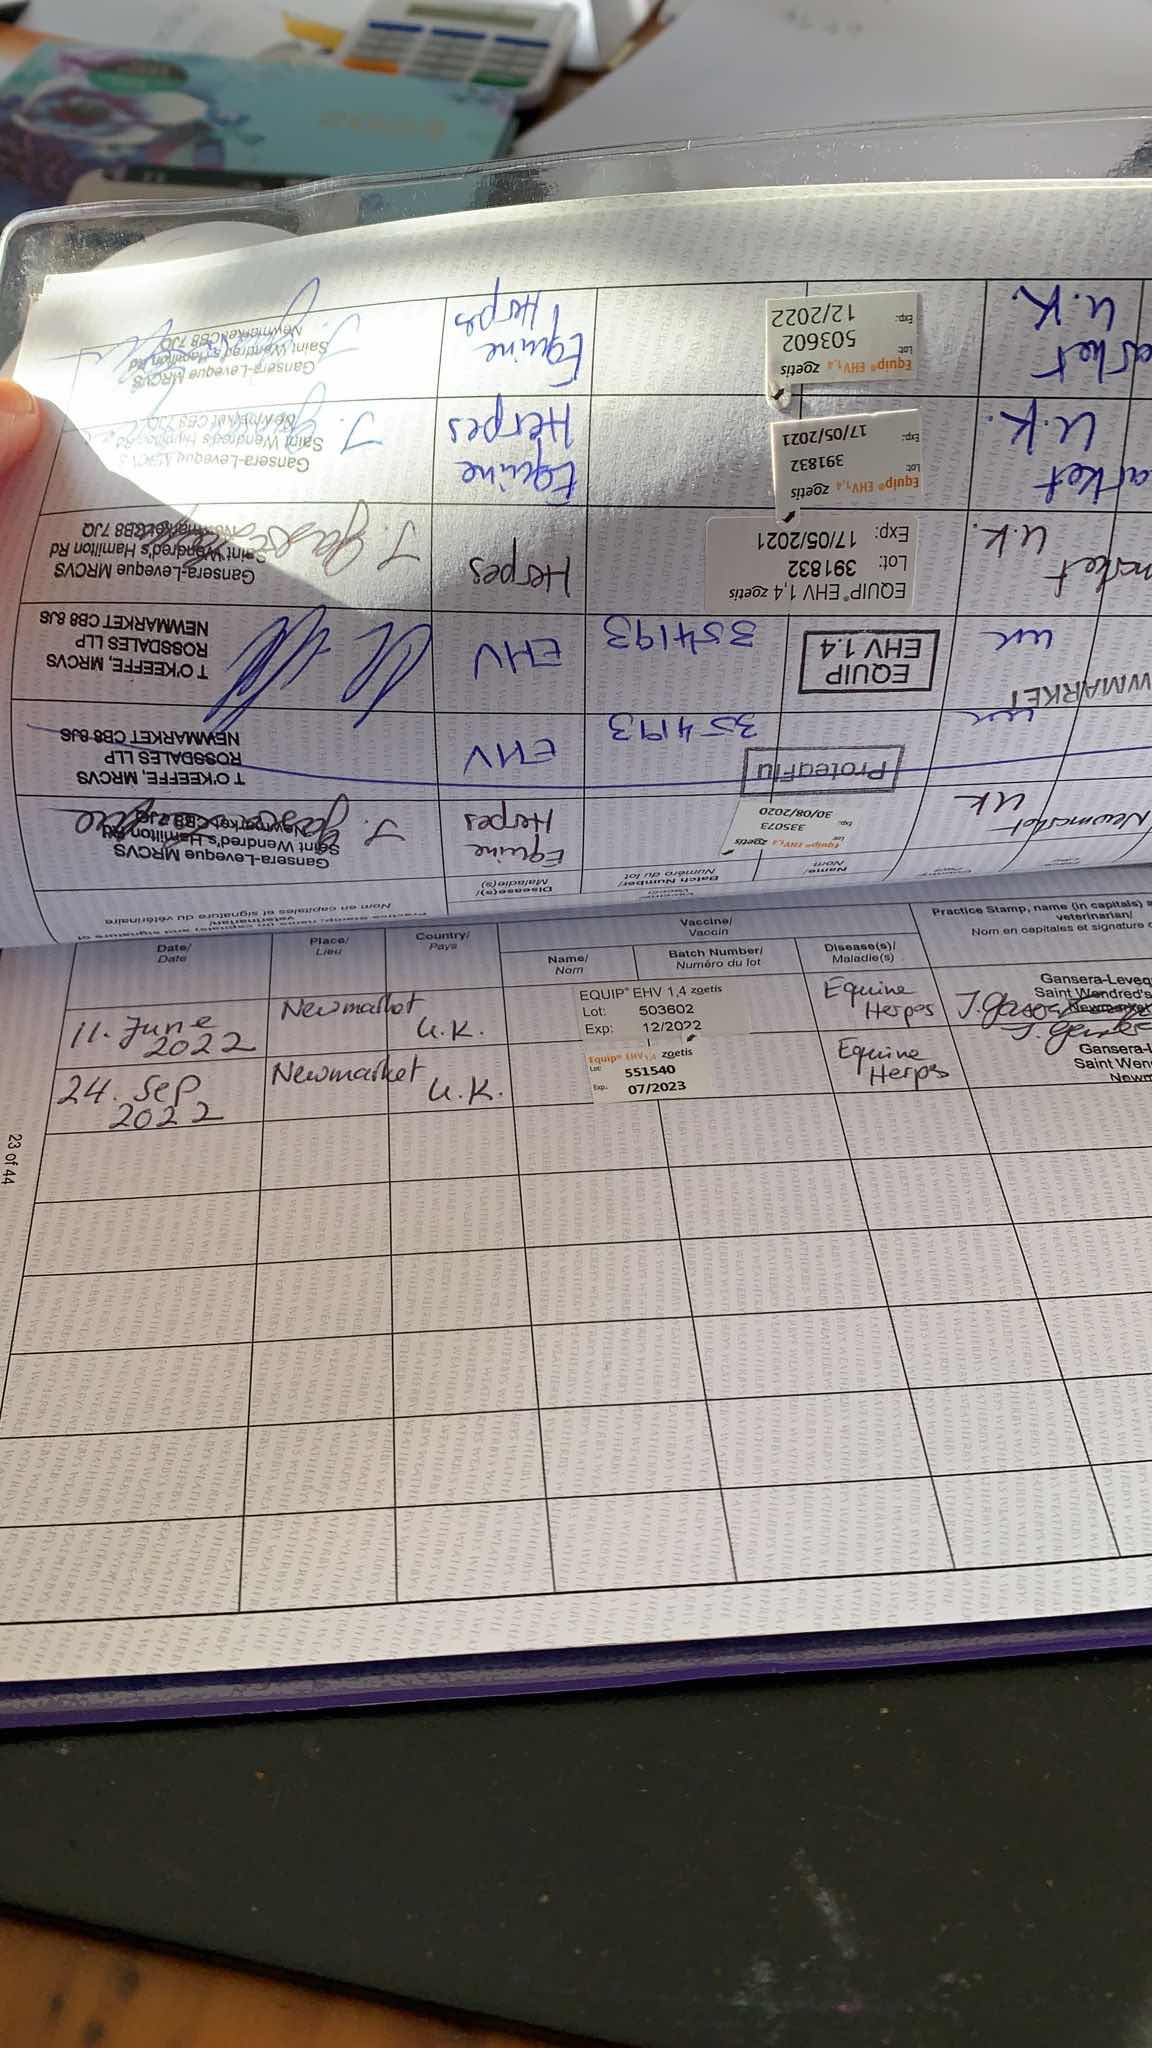 Date/
Date
Place/
Lieu
Country/
Pays
Vaccine/
Vaccin
Name/
Nom
Batch Number/
Numéro du lot
Disease(s)/
Maladie(s)
Practice Stamp, name (in capitals)
veterinarian/
Nom en capitales et signature
11. June
2022
Newmarket
U.K.
EQUIP® EHV 1,4 zoetis
Lot: 503602
Exp: 12/2022
Equine
Herpes
Gansera-Leveq
Saint Wendred's
Newmarket
24. Sep
2022
Newmarket
U.K.
Equip® EHV1,4 zoetis
Lot: 551540
Exp: 07/2023
Equine
Herpes
Gansera-L
Saint Wen
Newm
23 of 44
Name/
Nom
Batch Number/
Numéro du lot
Disease(s)/
Maladie(s)
Nom en capitales et signature du vétérinaire
Newmarket
UK
Equip® EHV1,4 zoetis
Lot: 335073
Exp: 30/08/2020
Equine
Herpes
Gansera-Leveque MRCVS
Saint Wendred's Hamilton Rd
Newmarket CB8 7JQ
UK
ProteqFlu
354193
EHV
T O'KEEFFE, MRCVS
ROSSDALES LLP
NEWMARKET CB8 8JS
WMARKET
UK
EQUIP
EHV 1.4
354193
EHV
T O'KEEFFE, MRCVS
ROSSDALES LLP
NEWMARKET CB8 8JS
market
U.K.
EQUIP® EHV 1,4 zoetis
Lot: 391832
Exp: 17/05/2021
Herpes
Gansera-Leveque MRCVS
Saint Wendred's Hamilton Rd
Newmarket CB8 7JQ
arket
U.K.
Equip® EHV1,4 zoetis
Lot 391832
Exp: 17/05/2021
Equine
Herpes
Gansera-Leveque MRCVS
Saint Wendred's Hamilton Rd
Newmarket CB8 7JQ
arket
U.K.
Equip® EHV1,4 zoetis
Lot: 503602
Exp: 12/2022
Equine
Herpes
Gansera-Leveque MRCVS
Saint Wendred's Hamilton Rd
Newmarket CB8 7JQ